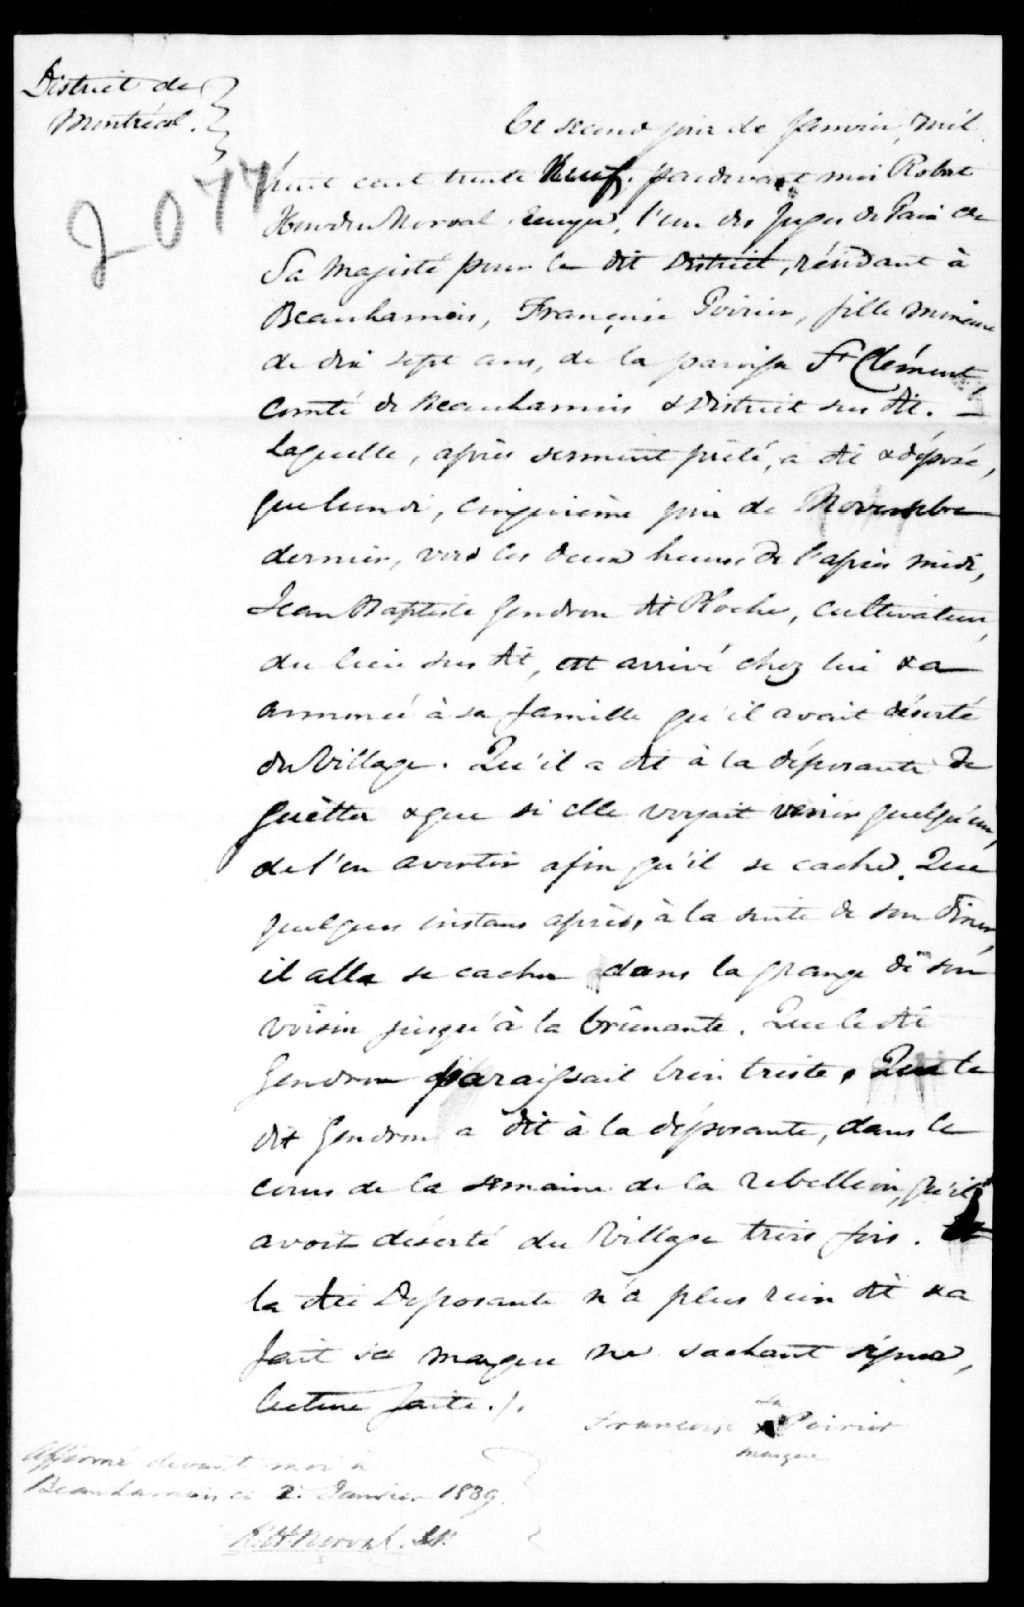 District de
Montréal.
2077
Ce second jour de Janvier, mil
huit cent trente Neuf. pardevant moi Robert
Howden Norval Ecuyer, l'un des Juges de Paix de
Sa Majesté pour le dit District, résidant à
Beauharnois, Françoise Poirier, fille mineure
de dix sept ans, de la paroisse St Clément,
comté de Beauharnois & District sus dit. —
Laquelle, après serment prêté, a dit & déposé,
que lundi, cinquième jour de Novembre
dernier, vers les deux heures de l'après midi,
Jean Baptiste Gendron dit Ploche, cultivateur,
du lieu sus dit, est arrivé chez lui & a
annoncé à sa famille qu'il avait déserté
du Village. Qu'il a dit à la déposante de
guètter & que si elle voyait venir quelqu'un,
de l'en avertir afin qu'il se cache. Que
quelques instans après, à la suite de son diner,
il alla se cacher dans la grange de son
voisin jusqu'à la brûnante. Que le dit
Gendron paraissait bien triste. Que le
dit Gendron a dit à la déposante, dans le
cours de la semaine de la rebellion, qu'il
avoit déserté du Village trois fois. Et
la dite Deposante n'a plus rien dit & a
fait sa marque ne sachant signer,
lecture faite./.
Francoise x Poirier
sa
marque
Affirmé devant moi à
Beauharnois ce 2. Janvier 1839.
R. H Norval. J.P.